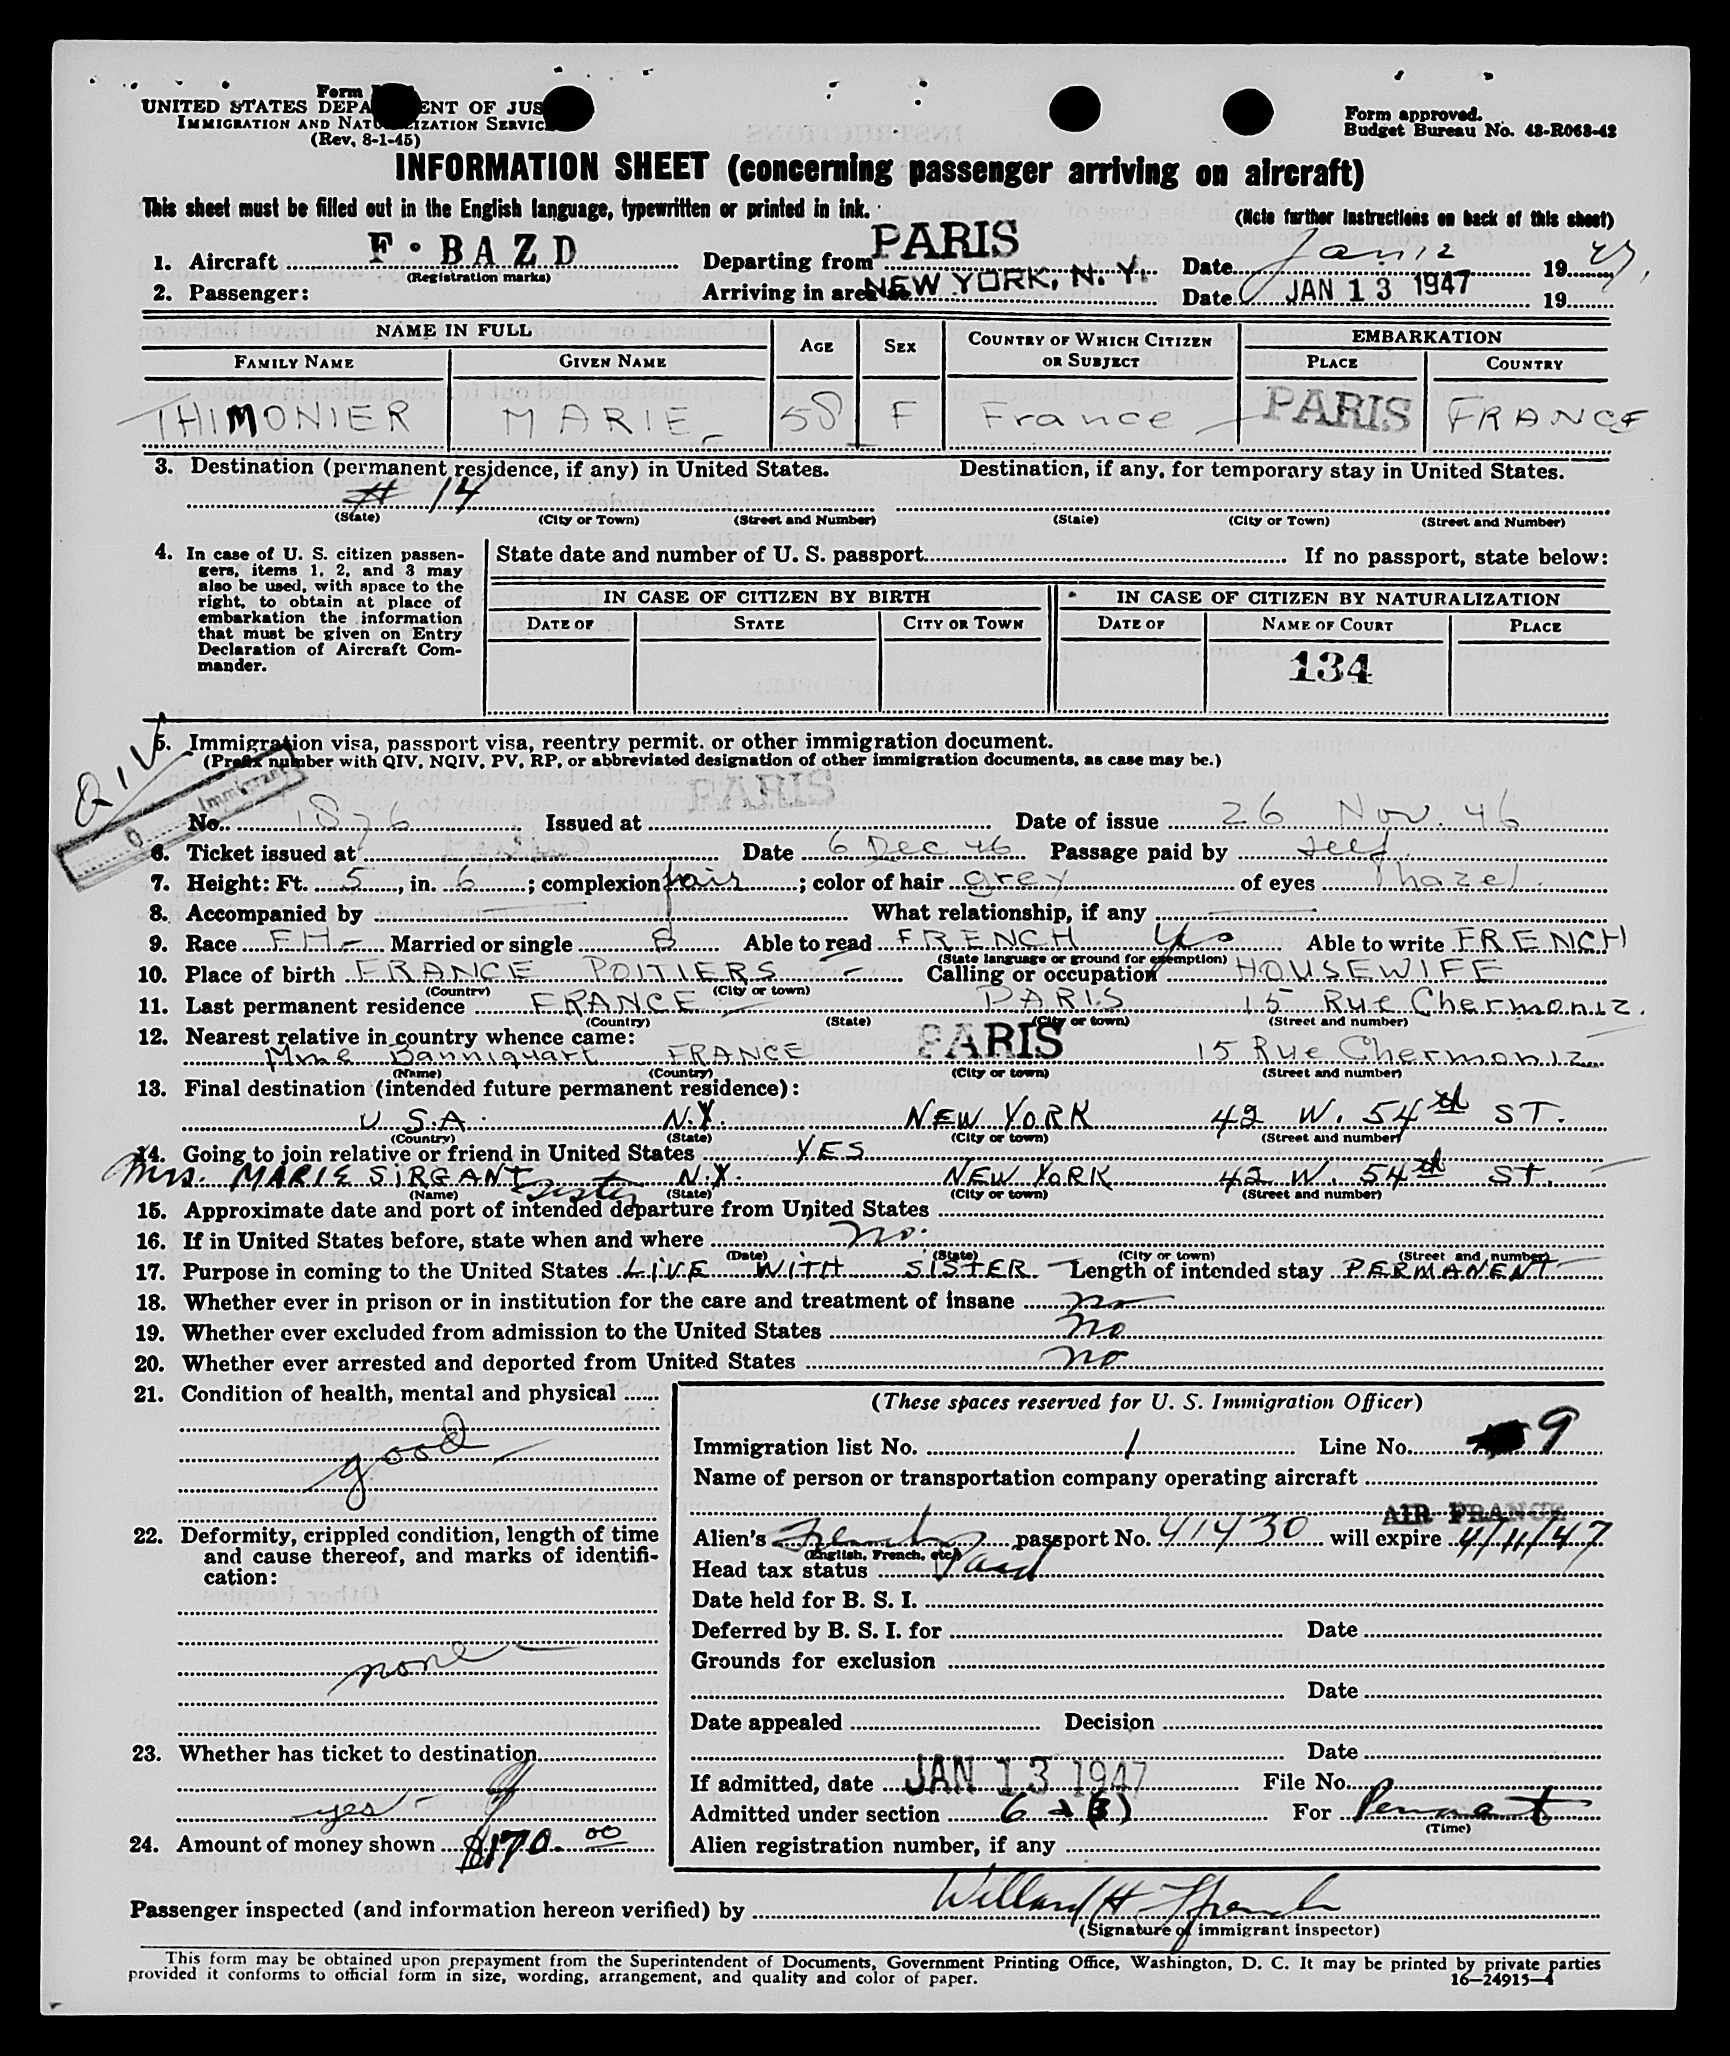 Form
UNITED STATES DEPA ENT OF JUS
IMMIGRATION AND NAT IZATION SERVIC
(Rev. 8-1-45)
Form approved.
Budget Bureau No. 43-R068-42
INFORMATION SHEET (concerning passenger arriving on aircraft)
This sheet must be filled out in the English language, typewritten or printed in ink.
(Note further instructions on back of this sheet)
1. Aircraft F·BAZD Departing from PARIS Date Jan 12 1947
(Registration marks)
2. Passenger: Arriving in area NEW YORK, N. Y. Date JAN 13 1947 19
NAME IN FULL AGE SEX COUNTRY OF WHICH CITIZEN OR SUBJECT EMBARKATION
FAMILY NAME GIVEN NAME PLACE COUNTRY
THIMONIER MARIE 58 F France PARIS FRANCE
3. Destination (permanent residence, if any) in United States. Destination, if any, for temporary stay in United States.
# 14
(State) (City or Town) (Street and Number) (State) (City or Town) (Street and Number)
4. In case of U. S. citizen passen-
gers, items 1, 2, and 3 may
also be used, with space to the
right, to obtain at place of
embarkation the information
that must be given on Entry
Declaration of Aircraft Com-
mander.
State date and number of U. S. passport If no passport, state below:
IN CASE OF CITIZEN BY BIRTH IN CASE OF CITIZEN BY NATURALIZATION
DATE OF STATE CITY OR TOWN DATE OF NAME OF COURT PLACE
134
5. Immigration visa, passport visa, reentry permit, or other immigration document.
(Prefix number with QIV, NQIV, PV, RP, or abbreviated designation of other immigration documents, as case may be.)
QIV
Q Immigrant
No. 1876 Issued at PARIS Date of issue 26 Nov. 46
6. Ticket issued at Date 6 Dec 46 Passage paid by self
7. Height: Ft. 5, in. 6; complexion fair; color of hair grey of eyes hazel
8. Accompanied by What relationship, if any
9. Race FH- Married or single S Able to read FRENCH Yes Able to write FRENCH
(State language or ground for exemption)
10. Place of birth FRANCE POITIERS Calling or occupation HOUSEWIFE
(Country) (City or town)
11. Last permanent residence FRANCE PARIS 15 Rue Chermoniz
(Country) (State) (City or town) (Street and number)
12. Nearest relative in country whence came:
Mme Banniquart FRANCE PARIS 15 Rue Chermoniz
(Name) (Country) (City or town) (Street and number)
13. Final destination (intended future permanent residence):
U.S.A. N.Y. NEW YORK 42 W. 54th ST.
(Country) (State) (City or town) (Street and number)
14. Going to join relative or friend in United States YES
Mrs. MARIE SIRGANT Sister N.Y. NEW YORK 42 W. 54th ST.
(Name) (State) (City or town) (Street and number)
15. Approximate date and port of intended departure from United States
16. If in United States before, state when and where no.
(Date) (State) (City or town) (Street and number)
17. Purpose in coming to the United States LIVE WITH SISTER Length of intended stay PERMANENT
18. Whether ever in prison or in institution for the care and treatment of insane no
19. Whether ever excluded from admission to the United States no
20. Whether ever arrested and deported from United States no
21. Condition of health, mental and physical
good
22. Deformity, crippled condition, length of time
and cause thereof, and marks of identifi-
cation:
none
23. Whether has ticket to destination
yes
24. Amount of money shown $170.00
(These spaces reserved for U. S. Immigration Officer)
Immigration list No. 1 Line No. 9
Name of person or transportation company operating aircraft
AIR FRANCE
Alien's French passport No. 41430 will expire 4/11/47
(English, French, etc.)
Head tax status Paid
Date held for B. S. I.
Deferred by B. S. I. for Date
Grounds for exclusion
Date
Date appealed Decision
Date
If admitted, date JAN 13 1947 File No.
Admitted under section 6 a (3) For Permanent
(Time)
Alien registration number, if any
Passenger inspected (and information hereon verified) by Willard H French
(Signature of immigrant inspector)
This form may be obtained upon prepayment from the Superintendent of Documents, Government Printing Office, Washington, D. C. It may be printed by private parties
provided it conforms to official form in size, wording, arrangement, and quality and color of paper.
16—24915-4